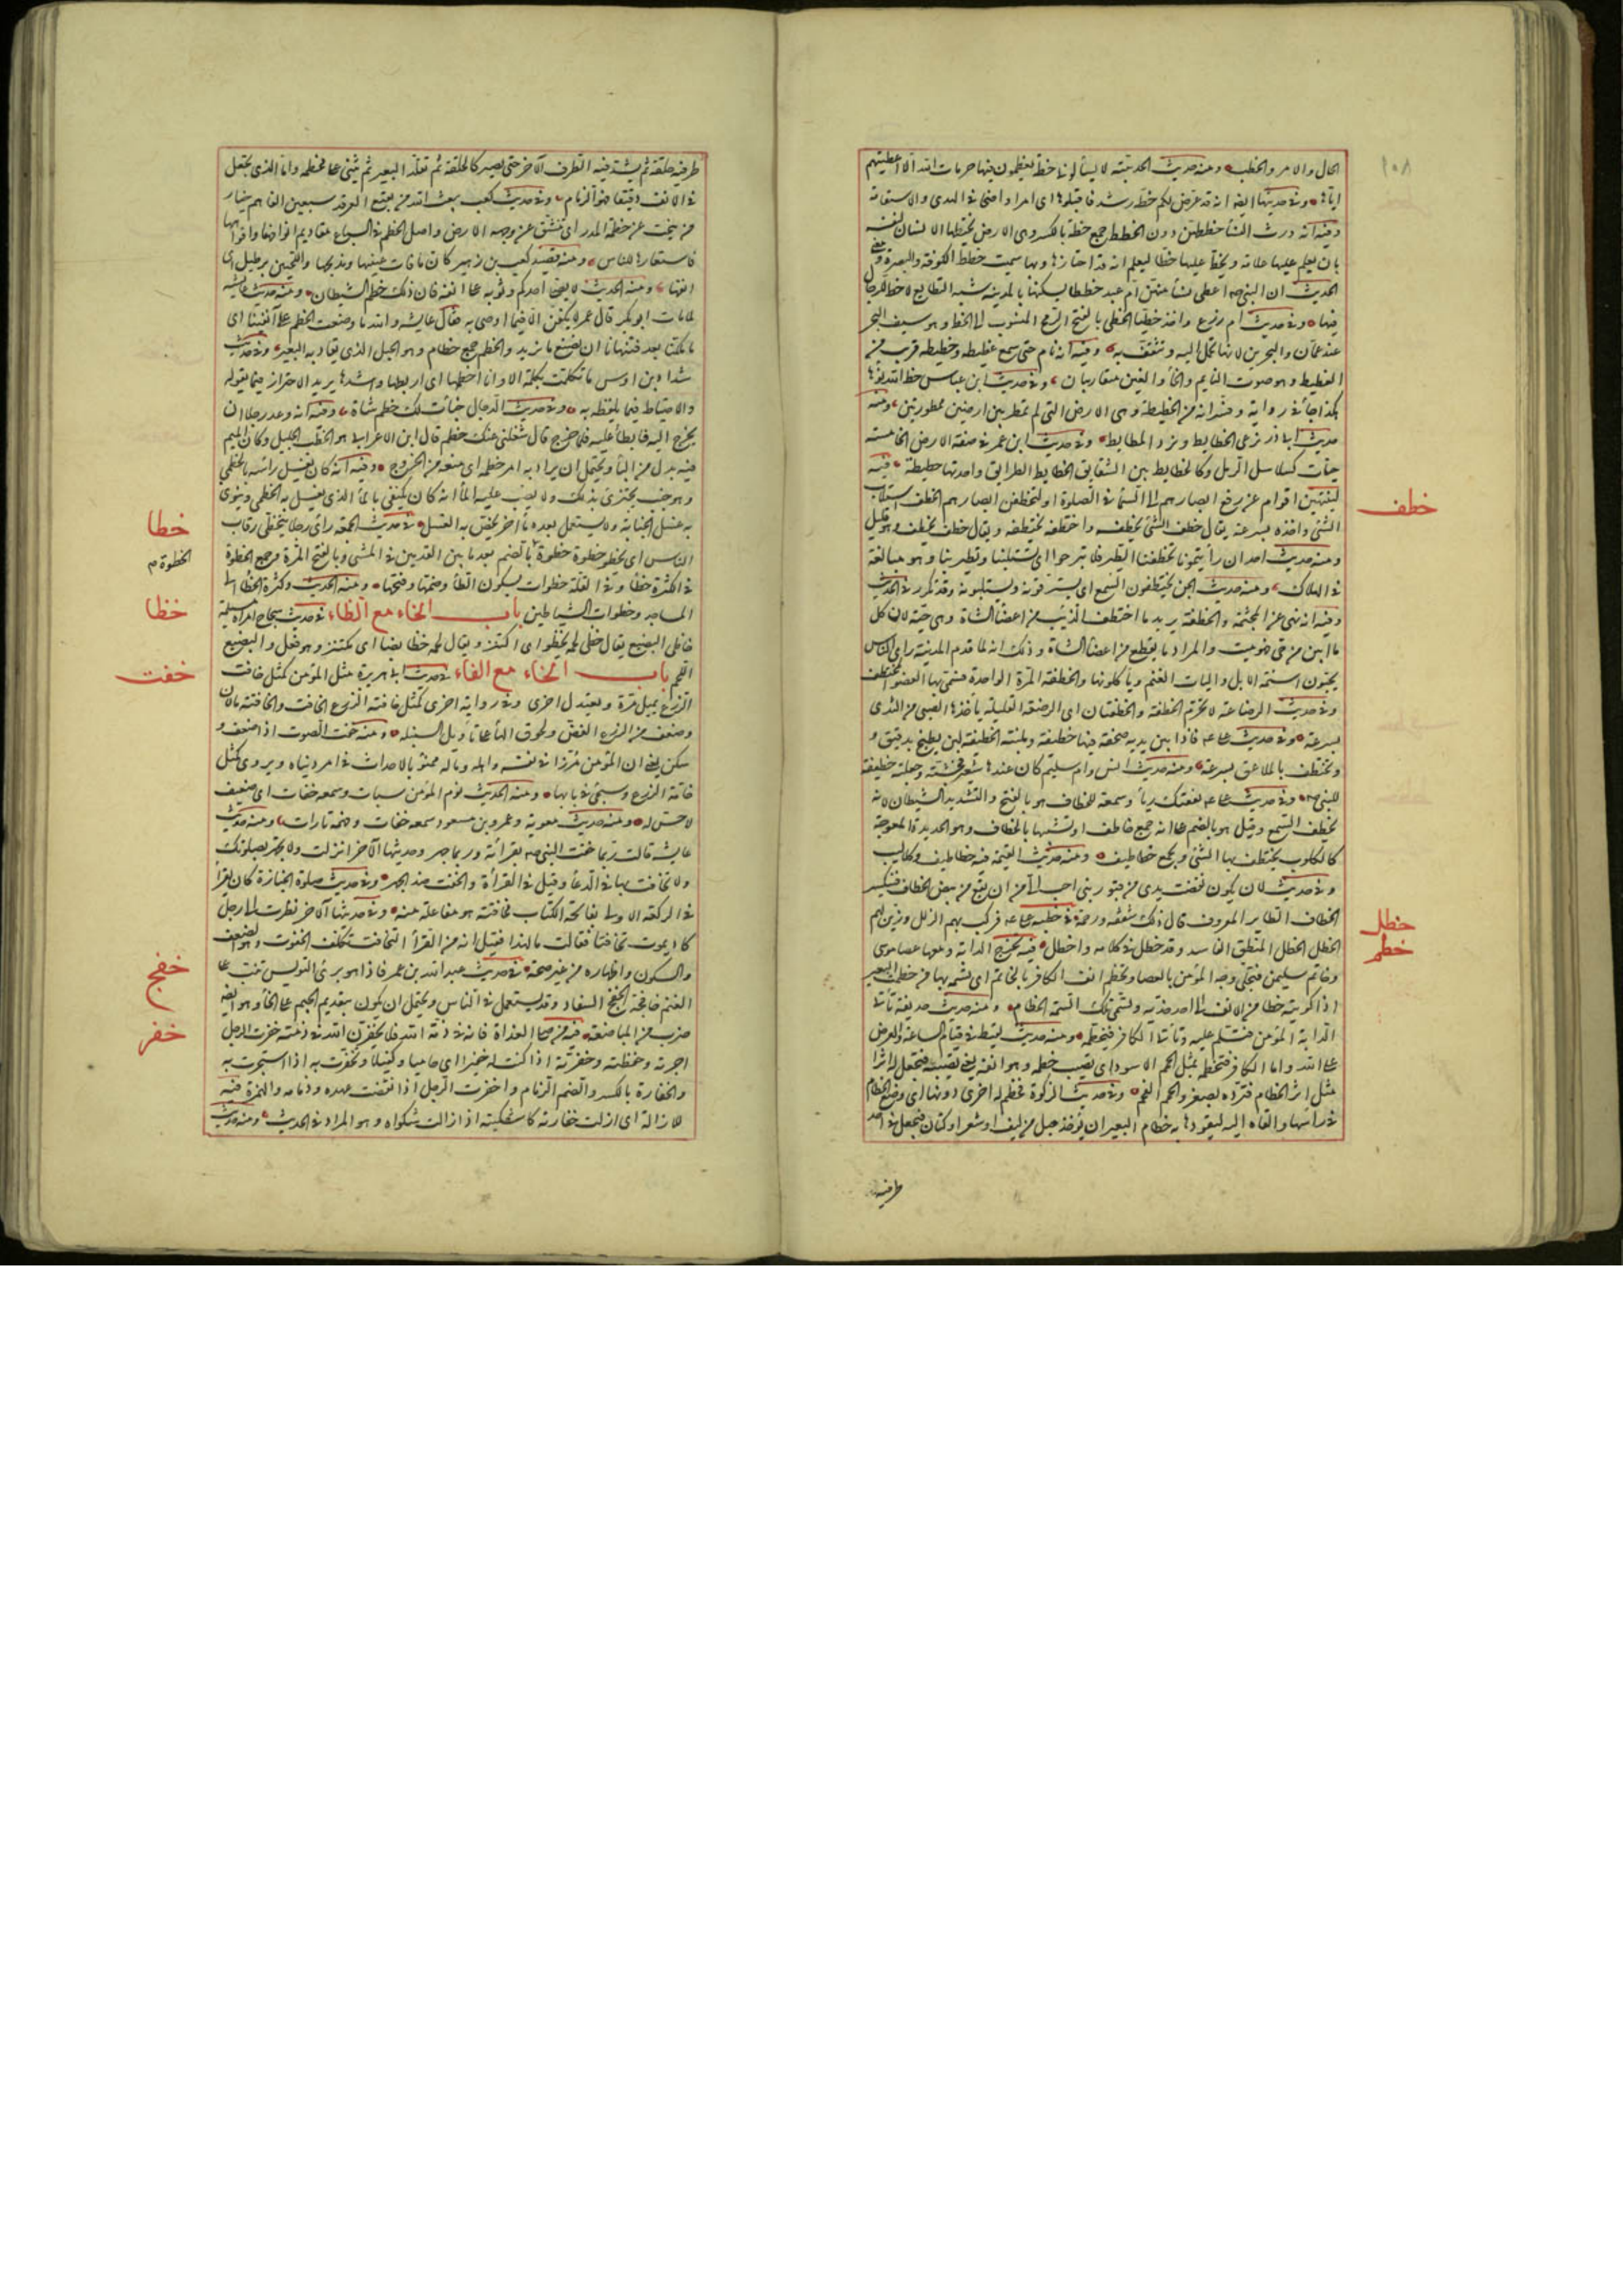 ١٠٨
الحال والامر والخطب ومنه حديث الحديبية لا يسألونى خطة يعظمون فيها حرمات الله الا اعطيتهم
اياها وفى حديثها ايضا انه قد عرض لكم خطة رشد فاقبلوها اى امرا واضحا فى الهدى والاستقامة
وفيه انه ورث النسأ خططهن دون الخطط جمع خطة بالكسر وهى الارض يختطها الانسان لنفسه
بان يعلم عليها علامة ويخط عليها خطا ليعلم انه قد احتازها وبها سميت خطط الكوفة والبصرة
الحديث ان النبى صم اعطى نسأ منهن ام عبد خططا يسكنها بالمدينة شبه القطايع لا حظ للرجال
فيها وفى حديث ام زرع واخذ خطيا الخطى بالفتح الرمح المنسوب الى الخط وهو سيف البحر
عند عمان والبحرين لانها تحمل اليه وتثقف به وفيه انه نام حتى سمع غطيطه وخطيطه قريب من
الغطيط وهو صوت النايم والخأ والغين متقاربان وفى حديث ابن عباس خط الله نوءها
هكذا جأ فى رواية وفسر انه من الخطيطة وهى الارض التى لم تمطر بين ارضين ممطورتين ومنه
حديث ابى ذر نرعى الخطايط ونرد المطايط وفى حديث ابن عمر فى صفة الارض الخامسة
حيات كسلاسل الرمل وكالخطايط بين الشقايق الخطايط الطرايق واحدتها خطيطة فيه
لينتهين اقوام عن رفع ابصارهم الى السمأ فى الصلوة او لتخطفن ابصارهم الخطف استلاب
الشئ واخذه بسرعة يقال خطف الشئ يخطفه واختطفه يختطفه ويقال خطف يخطف وهو قليل
ومنه حديث احد ان رأيتمونا تخطفنا الطير فلا تبرحوا اى تستلبنا وتطير بنا وهو مبالغة
فى الهلاك ومنه حديث الجن يختطفون السمع اى يسترقونه ويستلبونه وقد تكرر فى الحديث
وفيه انه نهى عن المجثمة والخطفة يريد ما اختطف الذئب من اعضأ الشاة وهى حية لان كل
ما ابين من حى فهو ميت والمراد ما يقطع من اعضأ الشاة وذلك انه لما قدم المدينة راى الناس
يجبون اسنمة الابل واليات الغنم ويأكلونها والخطفة المرة الواحدة فسمى بها العضو المختطف
وفى حديث الرضاعة لا تحرم الخطفة والخطفتان اى الرضعة القليلة يأخذها الصبى من الثدى
بسرعة وفى حديث على فاذا بين يديه صحفة فيها خطيفة وملبنة الخطيفة لبن يطبخ بدقيق و
يختطف بالملاعق بسرعة ومنه حديث انس وام سليم كان عندها شعير فجشته وجعلته خطيفة
للنبى صم وفى حديث على نفقتك ريأ وسمعة للخطاف هو بالفتح والتشديد الشيطان لانه
يخطف السمع وقيل هو بالضم على انه جمع خاطف او تشبيها بالخطاف وهو الحديدة المعوجة
كالكلوب يختطف بها الشئ ويجمع خطاطيف ومنه حديث القيمة فيه خطاطيف وكلاليب
وفى حديث لان يكون نفضت يدى من قبور بنى احب الى من ان يقع من بيض الخطاف فينكسر
الخطاف الطاير المعروف قال ذلك شفقة ورحمة فى خطبة على فركب بهم الزلل وزين لهم
الخطل الخطل المنطق الفاسد وقد خطل فى كلامه واخطل فيه تخرج الدابة ومعها عصا موسى
وخاتم سليمن فتجلى وجه المؤمن بالعصا وتخطم انف الكافر بالخاتم اى تسمه بها من خطمت البعير
اذا كويته خطا من الانف الى احد خديه وتسمى تلك السمة الخطام ومنه حديث حذيفة تأتى
الدابة المؤمن فتسلم عليه وتأتى الكافر فتخطمه ومنه حديث لقيط فى قيام الساعة والعرض
على الله واما الكافر فتخطمه بمثل الحمم الاسود اى تصيب خطمه وهو انفه يعنى تصيبه فتجعل له اثرا
مثل اثر الخطام فترده بصغر والحمم الفحم وفى حديث الزكوة فخطم له اخرى دونها اى وضع الخطام
فى راسها والقاه اليه ليقودها به خطام البعير ان يؤخذ حبل من ليف او شعر او كتان فيجعل فى احد
طرفيه
خطف
خطل
خطم
طرفيه حلقة ثم يشد فيه الطرف الآخر حتى يصير كالحلقة ثم تقلد البعير ثم يثنى على مخطمه واما الذى يجعل
فى الانف دقيقا فهو الزمام وفى حديث كعب يبعث الله من بقيع الغرقد سبعين الفا هم خيار
من ينحت عن خطمه المدر اى تنشق عن وجهه الارض واصل الخطم فى السباع مقاديم انوفها وافواهها
فاستعارها للناس ومنه قصيد كعب بن زهير كان ما فات عينيها ومذبحها واللحيين برطيل اى
انفها ومنه الحديث لا يصلى احدكم وثوبه على انفه فان ذلك خطم الشيطان ومنه حديث عايشة
لما مات ابو بكر قال عمر لا يكفن الا فيما اوصى به فقال عايشة والله ما وضعت الخطم على آنفنا اى
ما ملكتنا بعد فتنهانا ان نصنع ما نريد والخطم جمع خطام وهو الحبل الذى يقاد به البعير وفى حديث
شداد بن اوس ما تكلمت بكلمة الا وانا اخطمها اى اربطها واشدها يريد الاحتراز فيما يقوله
والاحتياط فيما يلفظ به وفى حديث الدجال خبأت لك خطم شاة وفيه انه وعد رجلا ان
يخرج اليه فابطأ عليه فلما خرج قال شغلنى عنك خطم قال ابن الاعرابى هو الخطب الجليل وكان الميم
فيه بدل من البأ ويحتمل ان يراد به امر خطمه اى منعه من الخروج وفيه انه كان يغسل راسه بالخطمى
وهو جنب يجتزئ بذلك ولا يصب عليه المأ انه كان يكتفى بالمأ الذى يغسل به الخطمى وينوى
به غسل الجنابة ولا يستعمل بعده مأ آخر يخص به الغسل فى حديث الجمعة راى رجلا يتخطى رقاب
الناس اى يخطو خطوة خطوة بالضم بعد ما بين القدمين فى المشى وبالفتح المرة وجمع الخطوة
فى الكثرة خطا وفى القلة خطوات بسكون الطأ وضمها وفتحها ومنه الحديث وكثرة الخطا الى
المساجد وخطوات الشياطين باب الخاء مع الظاء فى حديث سجاح امراة مسيلمة
خاظى البضيع يقال خظى لحمه يخظو اى اكتنز ويقال لحمه خظا بظا اى مكتنز وهو فعل والبضيع
اللحم باب الخاء مع الفاء فى حديث ابى هريرة مثل المؤمن كمثل خافت
الزرع يميل مرة ويعتدل اخرى وفى رواية اخرى كمثل خافتة الزرع الخافت والخافتة ما لان
وضعف من الزرع الغض ولحوق الهأ على تأويل السنبلة ومنه خفت الصوت اذا ضعف و
سكن يعنى ان المؤمن مرزأ فى نفسه واهله وماله ممنو بالاحداث فى امر دنياه ويروى كمثل
خافة الزرع وسيجئ فى بابها ومنه الحديث نوم المؤمن سبات وسمعه خفات اى ضعيف
لا حس له ومنه حديث معوية وعمرو بن مسعود سمعه خفات وفهمه تارات ومنه حديث
عايشة قالت ربما خفت النبى صم بقرأته وربما جهر وحديثها الآخر انزلت ولا تجهر بصلوتك
ولا تخافت بها فى الدعأ وقيل فى القرأة والخفت ضد الجهر وفى حديث صلوة الجنازة كان يقرأ
فى الركعة الاولى بفاتحة الكتاب مخافتة هو مفاعلة منه وفى حديثها الآخر نظرت الى رجل
كاد يموت تخافتا فقالت ما لهذا فقيل انه من القرأ التخافت تكلف الخفوت وهو الضعف
والسكون واظهاره من غير صحة فى حديث عبد الله بن عمر فاذا هو يرى التيوس تنب على
الغنم خافجة الخفج السفاد وقد يستعمل فى الناس ويحتمل ان يكون بتقديم الجيم على الخأ وهو ايضا
ضرب من المباضعة فيه من صلى الغداة فانه فى ذمة الله فلا يخفرن الله فى ذمته خفرت الرجل
اجرته وحفظته وخفرته اذا كنت له خفيرا اى حاميا وكفيلا وتخفرت به اذا استجرت به
والخفارة بالكسر والضم الزمام واخفرت الرجل اذا نقضت عهده وذمامه والهمزة فيه
للازالة اى ازلت خفارته كاشكيته اذا ازالت شكواه وهو المراد فى الحديث ومنه حديث
خطا
الخطوة م
خظا
خفت
خفج
خفر